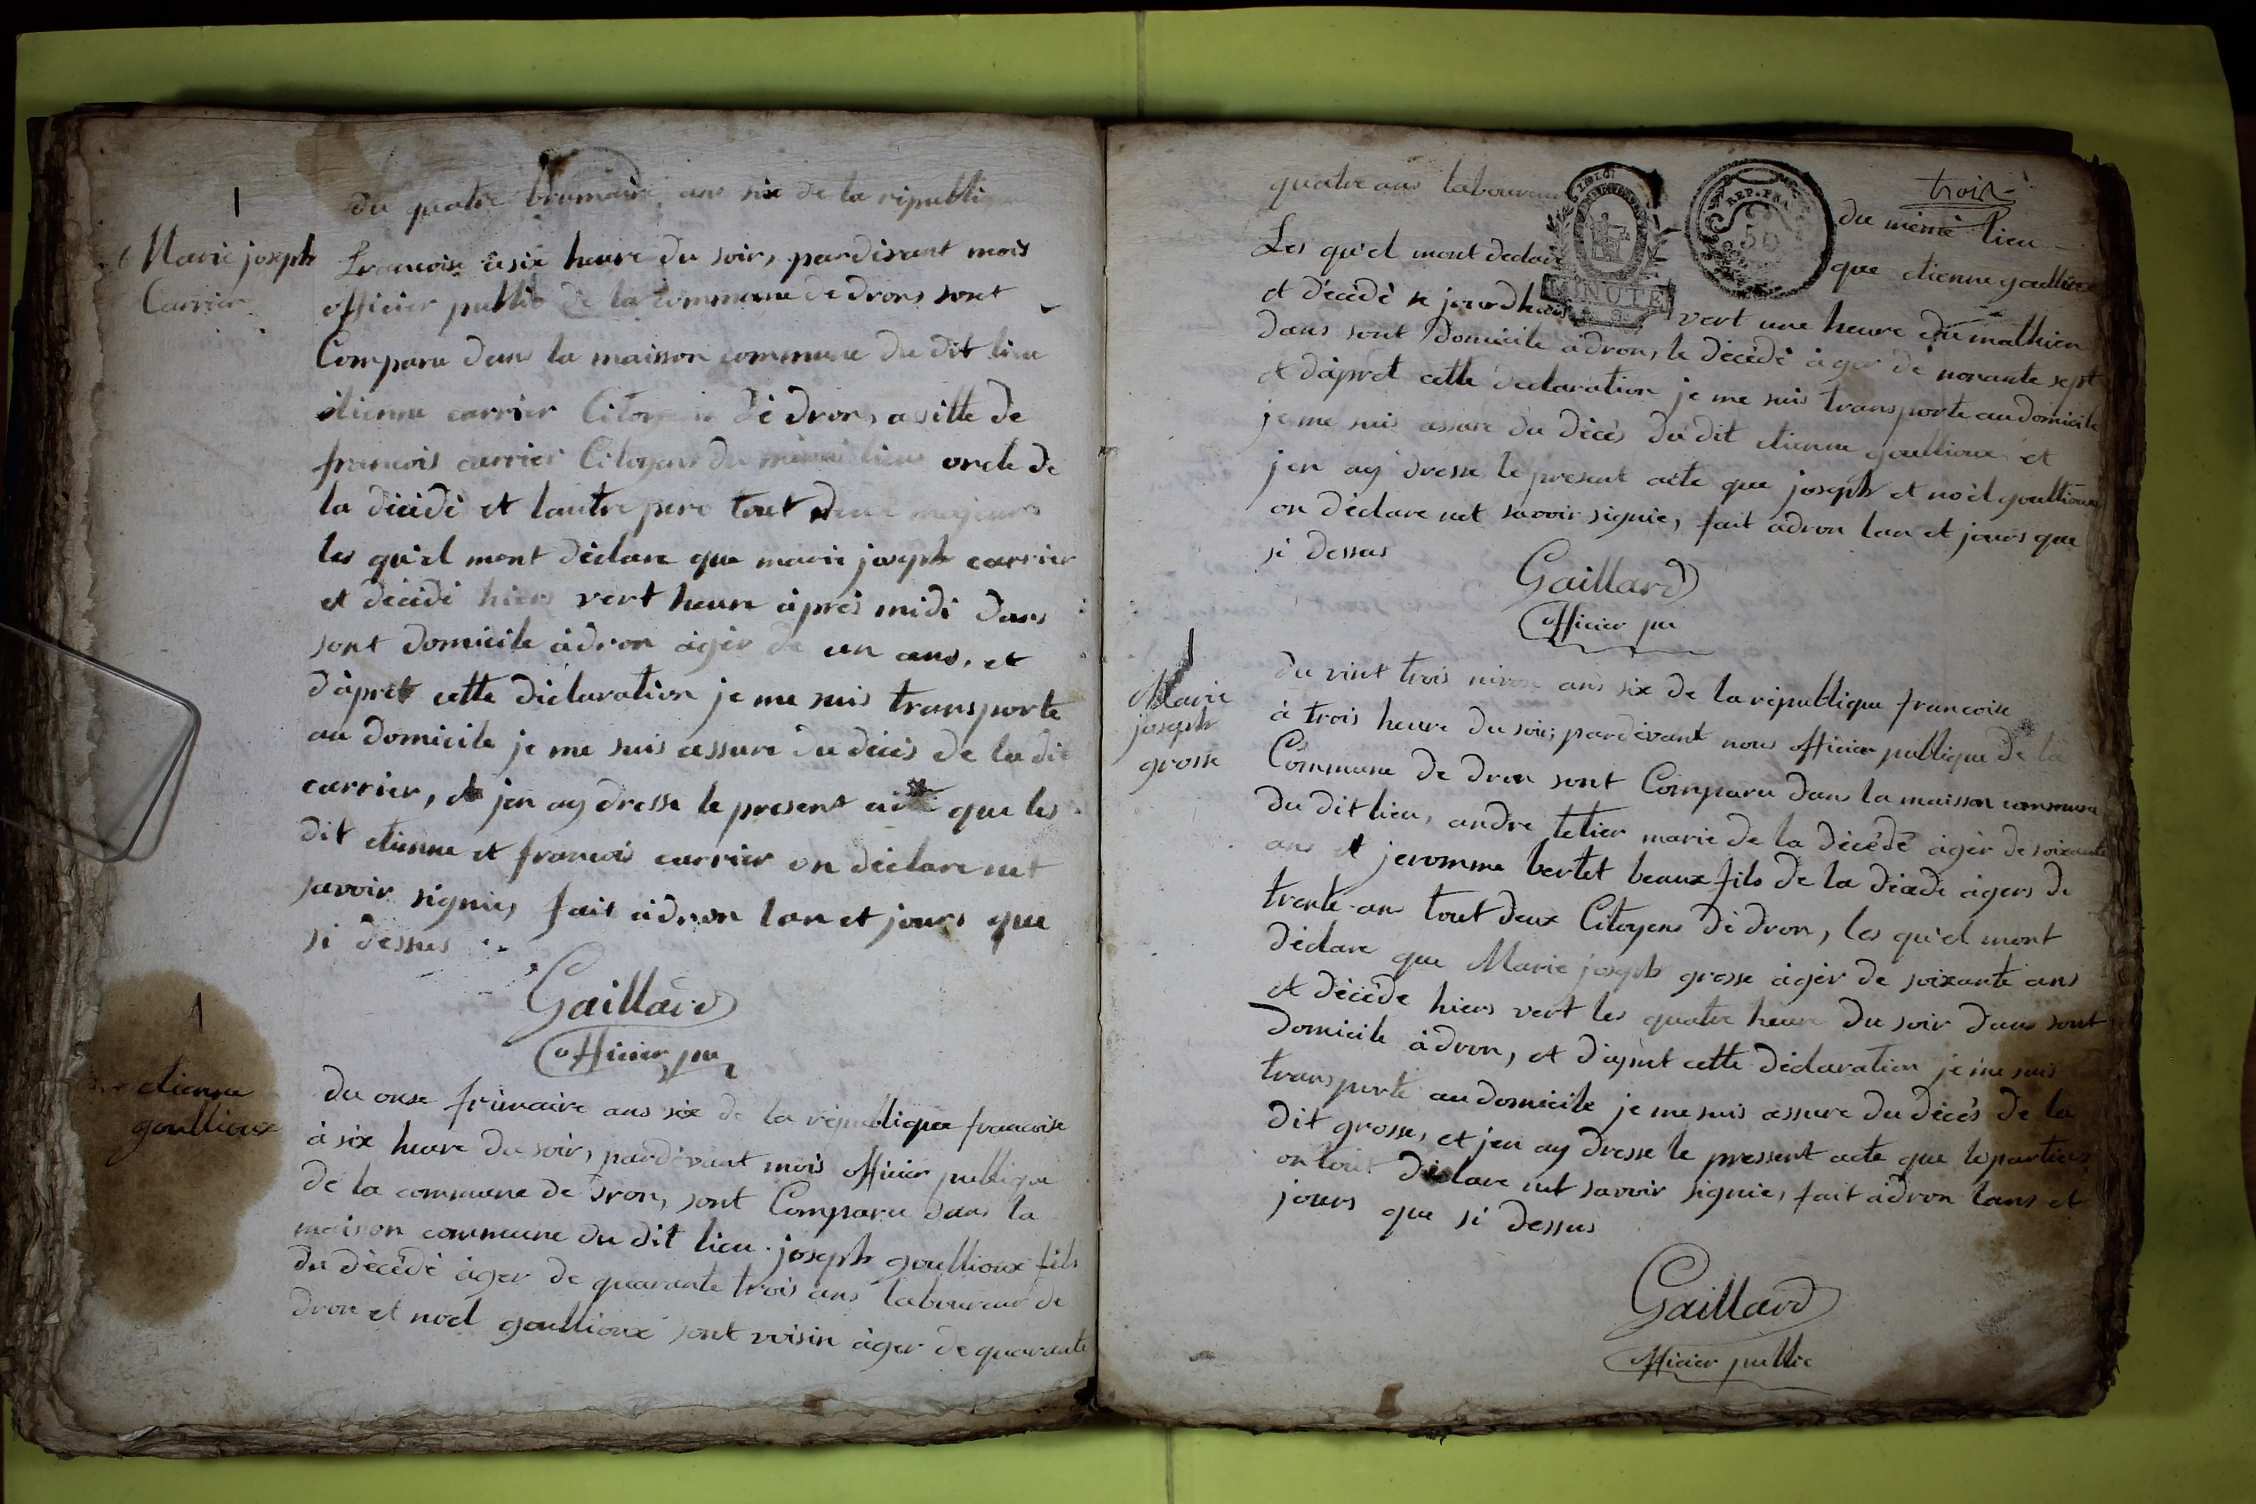 1
Marie joseph
Carrier
du quatre brumaire ans six de la republique
francoise à six heure du soir, pardevant mois
officier public de la commune de drons sont
Comparu dans la maison commune du dit lieu
etienne carrier Citoyen de dron, assitté de
francois carrier Citoyens du même lieu oncle de
la décédé et lautre pere tout deux majeurs
les qu'el mont déclare que marie joseph carrier
et décédé hiers vert heure àprès midi dans
sont domicile àdron àgér de un ans, et
d'àpret cette déclaration je me suis transporte
au domicile je me suis assure du décès de la dit
carrier, et jen ay dresse le present acte que les
dit etienne et francois carrier on déclare net
savoir signie, fait àdron lan et jours que
si dessus
Gaillard
officier pu
1
etienne
goullioux
du onse frimaire ans six de la république francoise
à six heure du soir, pardevant mois officier publique
de la commune de dron, sont Comparu dans la
maison commune du dit lieu joseph goullioux fils
du décédé àger de quarante trois ans laboureur de
dron et noel goullioux sont voisin àger de quarante
trois
quatre ans laboureur du même lieu
MINUTE
REP. FRA
50
Les qu'el mont declare que etienne goullioux
et décédé se jourdhuis vert une heure du mathien
dans sont domicile àdron, le décédé àger de nonante sept
et dàpret cette declaration je me suis transporte au domicile
je me suis assure du décès du dit etienne goullioux et
jen ay dresse le present acte que joseph et noèl goullioux
on déclare net savoir signie, fait àdron lan et jours que
si dessus
Gaillard
officier pu
1
Marie
joseph
grosse
du vint trois nivose ans six de la république francoise
à trois heure du soir, pardevant nous officier publique de la
Commune de dron sont Comparu dans la maison commune
du dit lieu, andre tetier marie de la décédé àgér de soixante
ans et jeromme bertet beaux fils de la décédé àgers de
trente ans tout deux Citoyens de dron, les qu'el mont
déclare que Marie joseph grosse àgér de soixante ans
et décéde hiers vert les quatre heure du soir dans sont
domicile àdron, et d'apret cette déclaration je me suis
transporte au domicile je me suis assure du décès de la
dit grosse, et jen ay dresse le pressent acte que les parties
on tout déclare net savoir signie, fait àdron lans et
jours que si dessus
Gaillard
officier public